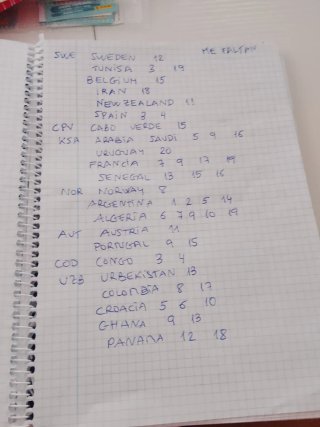 SWE SWEDEN 12 ME FALTAN
TUNISA 3 19
BELGIUM 15
IRAN 18
NEW ZEALAND 11
SPAIN 3 4
CPV CABO VERDE 15
KSA ARABIA SAUDI 5 9 16
URUGUAY 20
FRANCIA 7 9 17 19
SENEGAL 13 15 16
NOR NORWAY 8
ARGENTINA 1 2 5 14
ALGERIA 6 7 9 10 19
AUT AUSTRIA 11
PORTUGAL 9 15
COD CONGO 3 4
UZB URBEKISTAN 13
COLOMBIA 8 17
CROACIA 5 6 10
GHANA 9 13
PANAMA 12 18